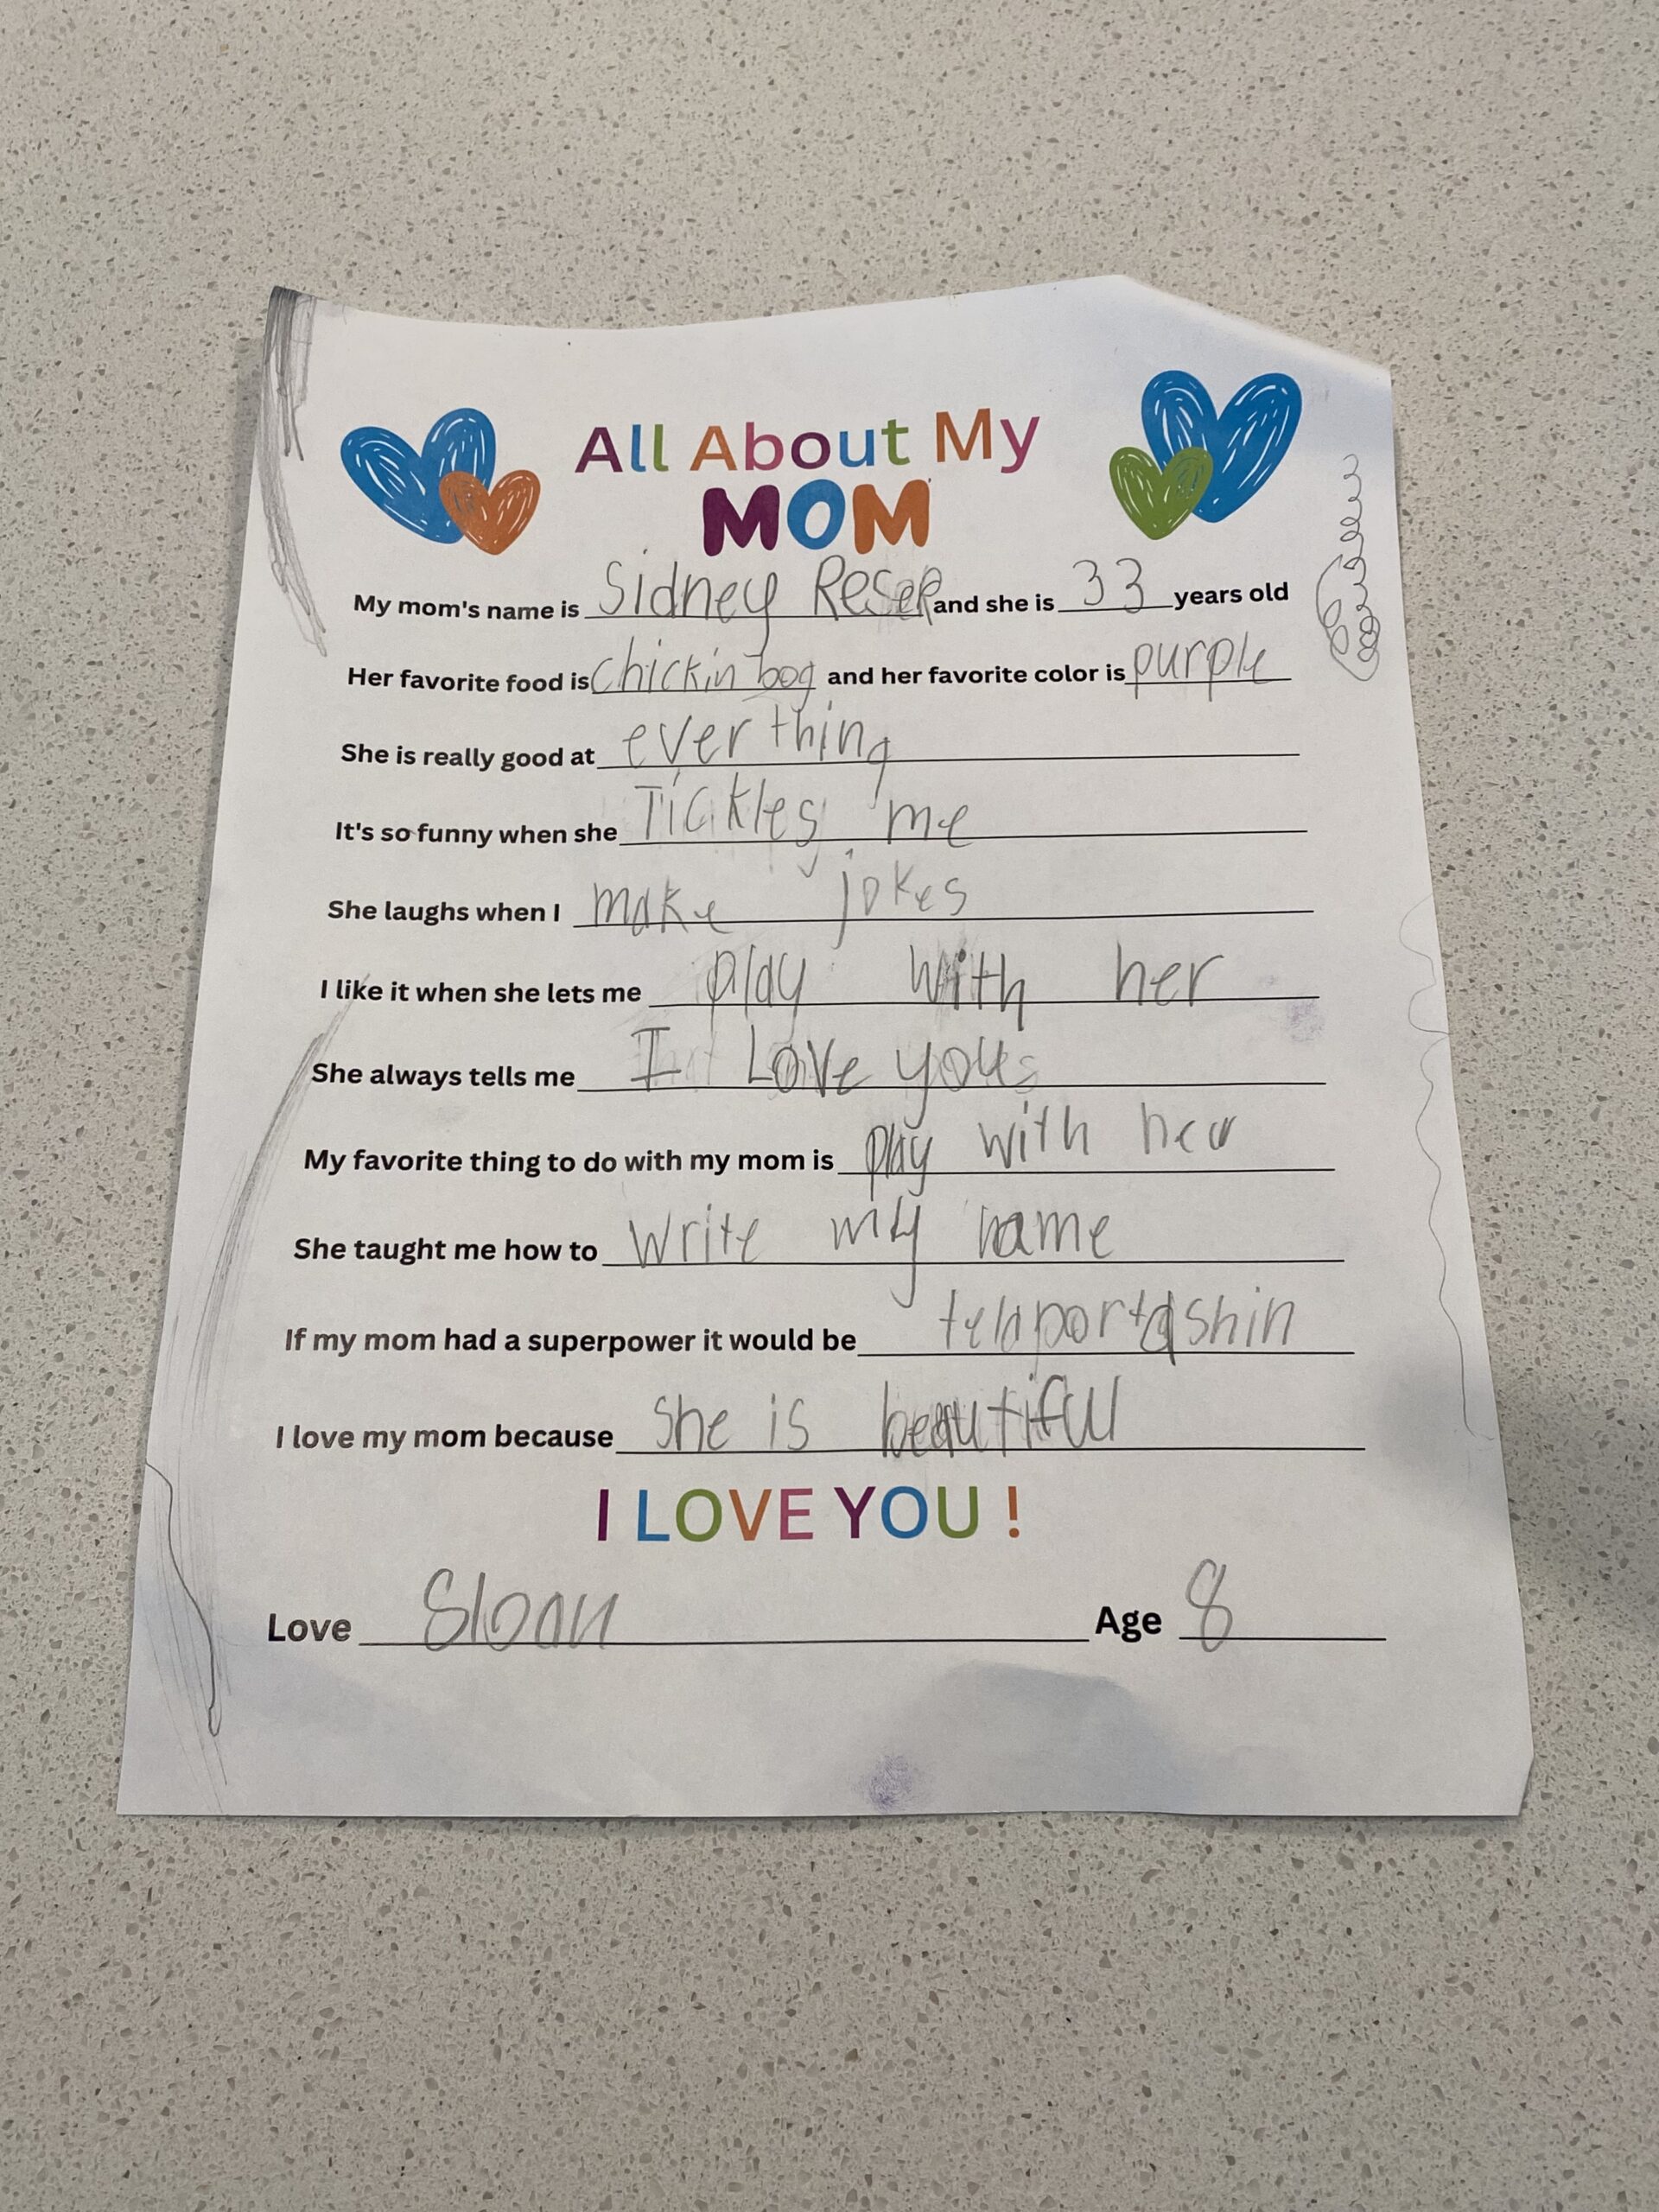 All About My
MOM
My mom's name is Sidney Reser and she is 33 years old
Her favorite food is chickin bog and her favorite color is purple
She is really good at everthing
It's so funny when she Tickles me
She laughs when I make jokes
I like it when she lets me play with her
She always tells me I Love you
My favorite thing to do with my mom is play with her
She taught me how to write my name
If my mom had a superpower it would be telaportashin
I love my mom because she is beautiful
I LOVE YOU !
Love Sloan Age 8